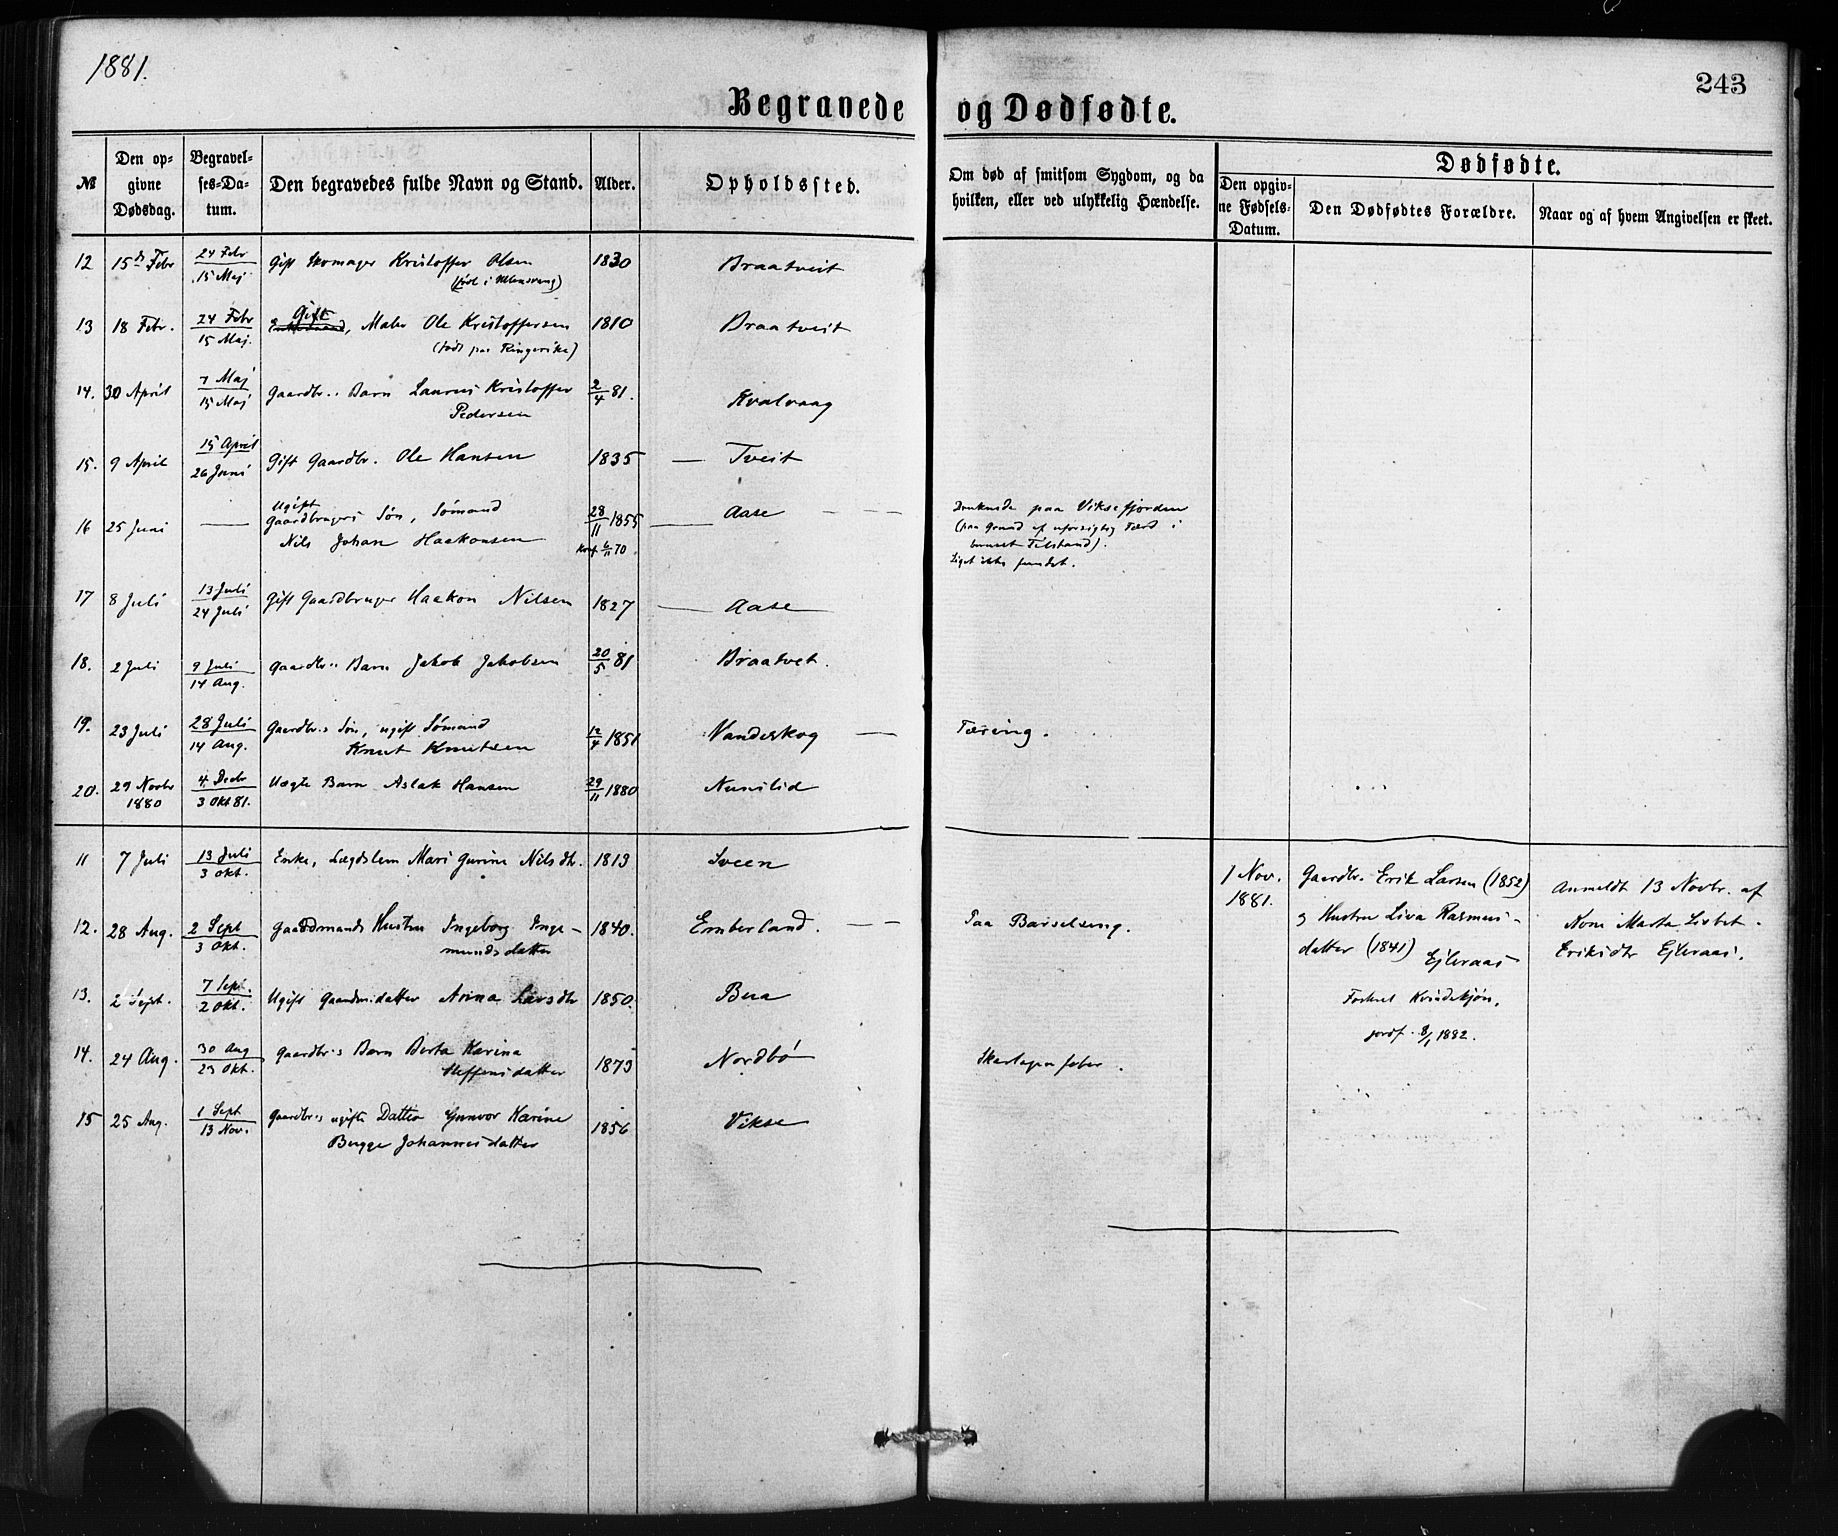 1881.
243
Begravede og Dødfødte.
№
Den opgivne Dødsdag.
Begravelses-Datum.
Den begravedes fulde Navn og Stand.
Alder.
Opholdssted.
Om død af smitsom Sygdom, og da hvilken, eller ved ulykkelig Hændelse.
Dødfødte.
Den opgivne Fødsels-Datum.
Den Dødfødtes Forældre.
Naar og af hvem Angivelsen er skeet.
12 15de Febr 24 Febr Gift Skomager Kristoffer Olsen 1830 Braatveit
15 Maj (født i Ullensvang)
13 18 Febr. 24 Febr Gift, Maler Ole Kristoffersen 1810 Braatveit
15 Maj. (født paa Ringerike)
14. 30 April 7 Maj Gaardbr.s Barn Laurus Kristoffer 2/4 81. Kvalvaag
15 Maj Pedersen
15. 9 April 15 April Gift Gaardbr. Ole Hansen 1835 — Tveit
26 Juni
16 25 Juni — Ugift Gaardbrugers Søn, Sømand 28/11 1855 — Aase — — Druknede paa Viksefjorden
Nils Johan Haakonsen Konf. 6/11 70. (paa Grund af uforsigtig Færd i
beruset Tilstand).
Liget ikke fundet.
17 8 Juli 13 Juli Gift Gaardbruger Haakon Nilsen 1827 — Aase
24 Juli
18. 2 Juli 9 Juli Gaardbr.s Barn Jakob Jakobsen 20/5 81 Braatvet.
14 Aug.
19. 23 Juli 28 Juli Gaardbr.s Søn, ugift Sømand 12/4 1851 Vandaskog — Tæring.
14 Aug. Knut Knutsen
20. 29 Novbr 4. Decbr Uægte Barn Aslak Hansen 29/11 1880 Nuvslid
1880 3 Okt 81.
11 7 Juli 13 Juli Enke, Lægdslem Mari Gurine Nilsdtr. 1813 Sveen
3 Okt.
12. 28 Aug. 2 Sept Gaardmands Hustru Ingeborg Inge- 1840. Emberland. — Paa Barselseng.
3 Okt. mundsdatter
13. 2 Sept. 7 Sept. Ugift Gaardm.s datter Anna Larsdtr 1850. Bua
2 Okt.
14. 24 Aug. 30 Aug Gaardbr.s Barn Berta Karina 1873 Nordbö Skarlagensfeber.
23 Okt. Steffensdatter
15 25 Aug. 1 Sept Gaardbr.s ugifte Datter Gunvor Karine 1856 Vikse
13 Nov. Bugge Johannesdatter
1 Nov. 1881.
Gaardbr. Erik Larsen (1852)
og Hustru Liva Rasmus-
datter (1841) Ejleraas
Foster Kvindekjön.
jordf. 8/1 1882.
Anmeldt 13 Novbr. af
Kone Marta Lisbet
Eriksdtr Ejleraas.